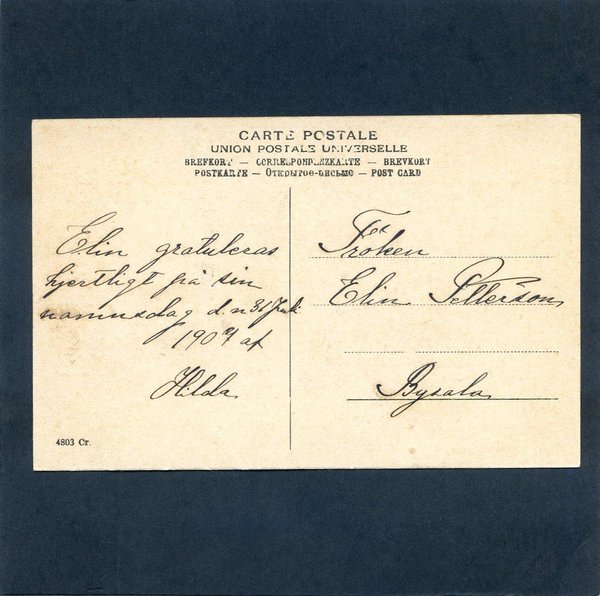 CARTE POSTALE
UNION POSTALE UNIVERSELLE
BREFKORT — CORRESPONDENZKARTE — BREVKORT
POSTKARTE — Открытое-письмо — POST CARD
Elin gratuleras
hjertligt på sin
namnsdag d. 31 Juli
1907 af
Hilda
Fröken
Elin Petterson
Bysala
4803 Cr.